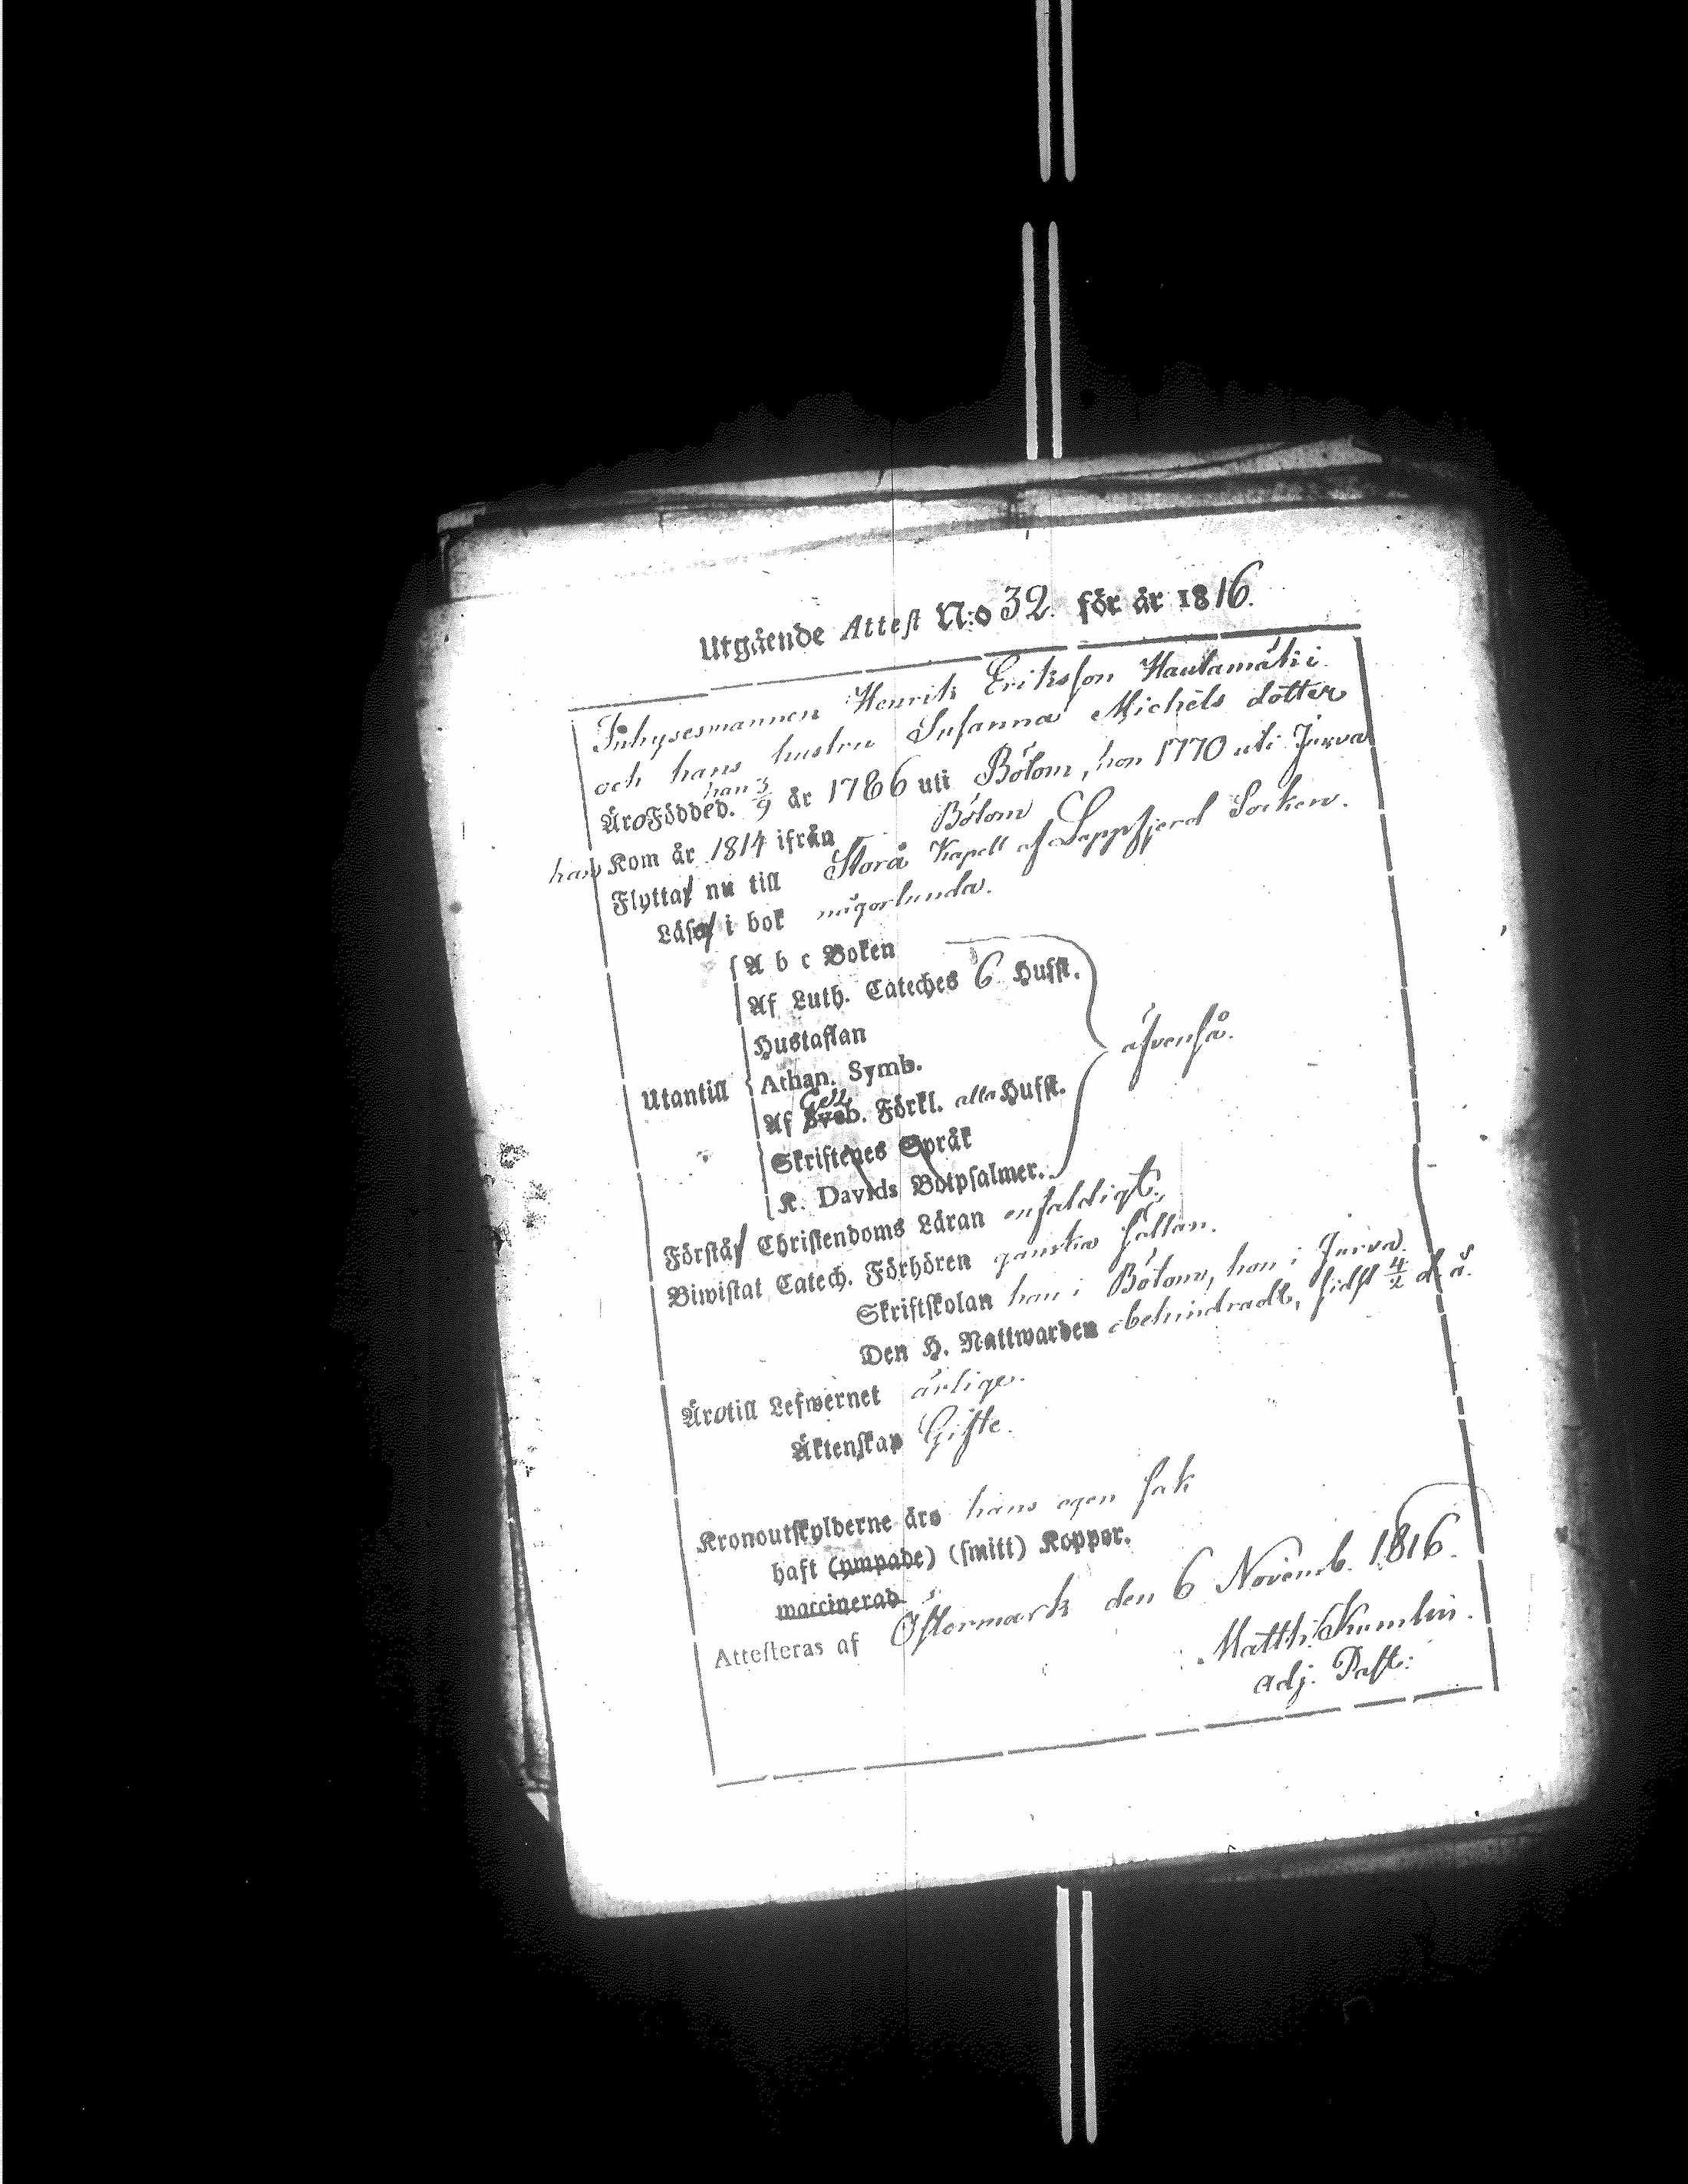 Utgående Attest N:o 32. för år 1816.
Inhysesmannen Henrik Eriksson Hautamäki
och hans hustru Susanna Michels dotter
Äro Född ed. han 3/9 år 1786 uti Bötom, hon 1770 uti Jurva
han Kom år 1814 ifrån Bötom
Flytta nu till Storå Kapell af Lappfjerd Socken.
Läsa i bok någorlunda.
A b c Boken
Af Luth. Cateches 6 Hufst.
Hustaflan
Utantill Athan. Symb. äfvenså.
Af Sveb. Gez. Förkl. alla Hufst.
Skriftenes Språk
K. Davids Botpsalmer.
Förstå Christendoms Läran enfaldigt.
Biwistat Catech. Förhören ganska sällan.
Skriftskolan han i Bötom, hon i Jurva.
Den H. Nattwarden obehindradt, sidst 4/2 d. å.
Äro till Lefwernet ärlige.
Äktenskap Gifte.
Kronoutskylderne äro hans egen sak
haft (ympade) (smitt) Koppor.
waccinerad
Attesteras af Östermark den 6 Novemb. 1816.
Matth. Kumlin.
adj. Past: